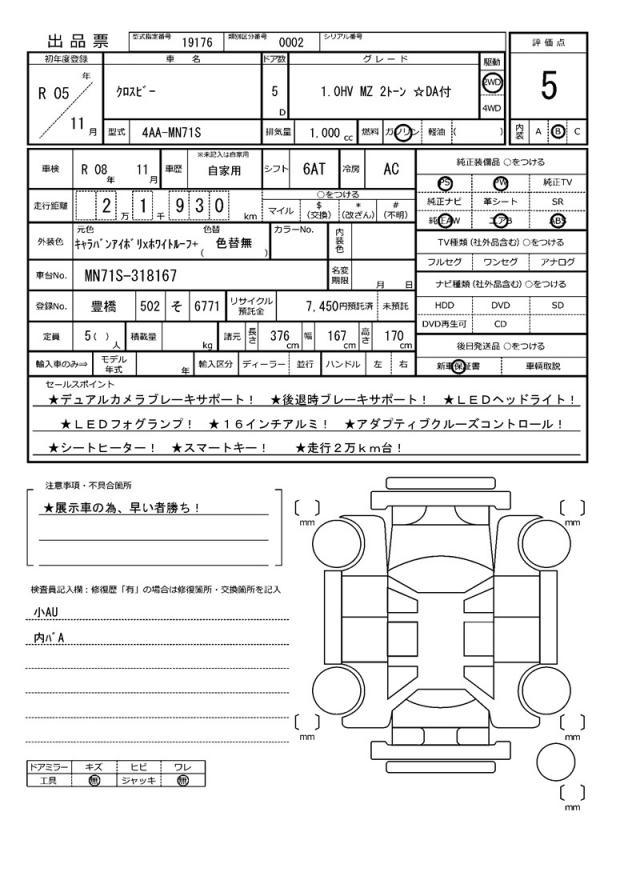 出品票 型式指定番号 19176 類別区分番号 0002 シリアル番号
評価点
初年度登録 車名 ドア数 グレード 駆動
R 05 年 11 月 クロスビー 5 D 1.0HV MZ 2トーン ☆DA付 2WD 4WD 5
型式 4AA-MN71S 排気量 1.000 cc 燃料 ガソリン 軽油 ( ) 内装 A B C
車検 R 08 年 11 月 車歴 ※未記入は自家用 自家用 シフト 6AT 冷房 AC
走行距離 2 万 1 千 9 3 0 km ○をつける マイル $ (交換) * (改ざん) # (不明)
外装色 元色 キャラバンアイボリXホワイトルーフ+ 色替 ( 色替無 ) カラーNo. 内装色
車台No. MN71S-318167 名変期限 月 日
登録No. 豊橋 502 そ 6771 リサイクル預託金 7,450円預託済 未預託
定員 5( ) 人 積載量 kg 諸元 長さ 376 cm 幅 167 cm 高さ 170 cm
輸入車のみ⇒ モデル年式 年 輸入区分 ディーラー 並行 ハンドル 左 右
純正装備品 ○をつける
PS PW 純正TV
純正ナビ 革シート SR
純正AW エアB ABS
TV種類 (社外品含む) ○をつける
フルセグ ワンセグ アナログ
ナビ種類 (社外品含む) ○をつける
HDD DVD SD
DVD再生可 CD
後日発送品 ○をつける
新車保証書 車輌取説
セールスポイント
★デュアルカメラブレーキサポート! ★後退時ブレーキサポート! ★LEDヘッドライト!
★LEDフォグランプ! ★16インチアルミ! ★アダプティブクルーズコントロール!
★シートヒーター! ★スマートキー! ★走行2万km台!
注意事項・不具合箇所
★展示車の為、早い者勝ち!
検査員記入欄:修復歴「有」の場合は修復箇所・交換箇所を記入
小AU
内バA
ドアミラー キズ ヒビ ワレ
工具 無 ジャッキ 無
[ ] mm
[ ] mm
[ ] mm
[ ] mm
[ ] mm